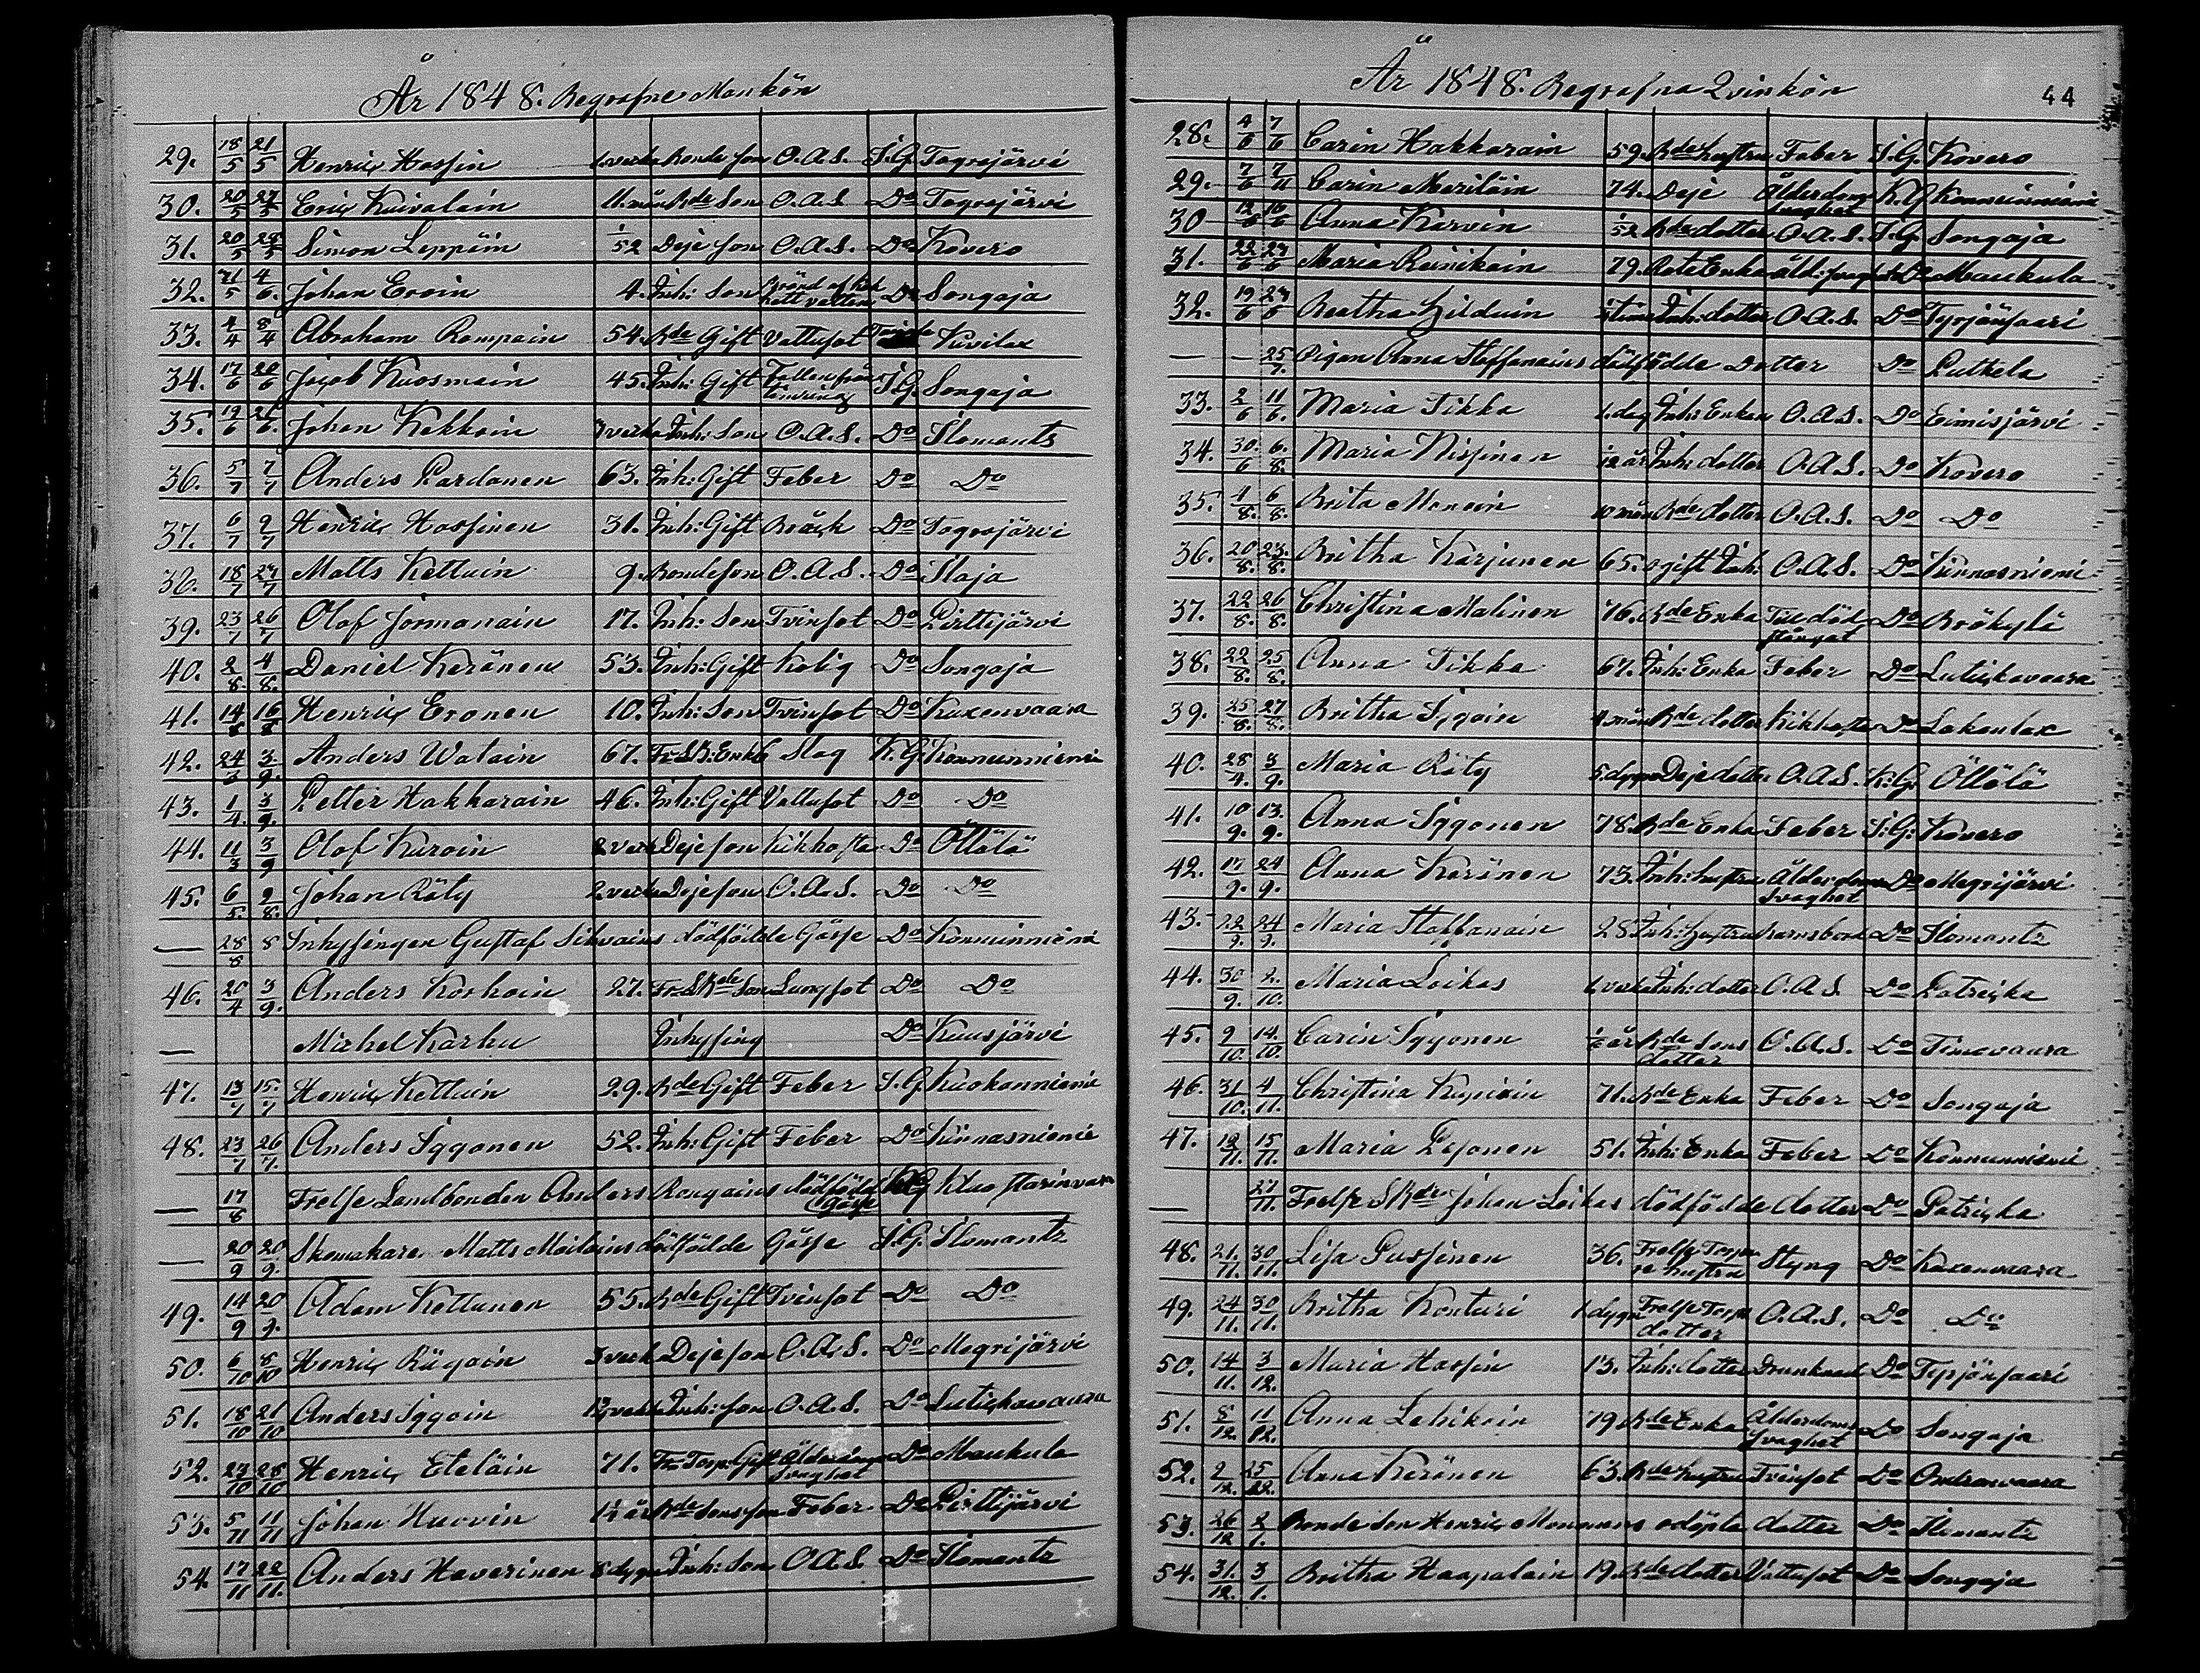 År 1848. Begrafne Mankön
29. 18/5 21/5 Henric Hassin 1 vecka Bonde son O.A.S. I.G. Togosjärvi
30. 20/5 27/5 Eric Kuivalain 11 mån Bde Son O.A.S Do Togosjärvi
31. 20/5 28/5 Simon Leppäin 1/52 Deje son O.A.S. Do Kovero
32. 21/5 4/6. Johan Eroin 4. Inh: Son Bränd af het hett vatten Do Songaja
33. 4/4 8/4 Abraham Rompain 54. Bde Gift Vattusot Kivilax
34. 17/6 20/6 Jacob Kuosmain 45. Inh: Gift Fallen från I.G. Songaja
35. 19/6 26/6. Johan Kekkoin 3 vecka Inh: Son O.A.S. Do Ilomants
36. 5/7 7/7 Anders Pardanen 63. Inh: Gift Feber Do Do
37. 6/7 9/7 Henric Hassinen 31. Inh: Gift Bråck Do Togosjärvi
38. 18/7 23/7 Matts Kettuin 9. Bonde son O.A.S. Do Ilaja
39. 23/7 26/7 Olof Jormanain 17. Inh: Son Tvinsot Do Pirttijärvi
40. 2/8. 4/8. Daniel Keränen 53. Inh: Gift Kolig Do Songaja
41. 14/8 16/8 Henric Eronen 10. Inh: Son Tvinsot Do Kuxenvaara
42. 24/3 3/9. Anders Walain 67. Fr. S.B: Enkl Slag K.G. Konnunniemi
43. 1/4. 3/9. Petter Hakkarain 46. Inh: Gift Vattusot Do Do
44. 11/3 3/9 Olof Kiroin 2 veck Deje son Kikhosta Do Öllölä
45. 6/5. 9/8. Johan Räty 2 vecka Deje son O.A.S. Do Do
— 28/8 8 Inhysingen Gustaf Sihvains dödfödde Gosse Do Konnunniemi
46. 20/4 3/9. Anders Korhoin 27. Fr. S Bde Son Lungsot Do Do
— Michel Karhu Inhysing Do Kuusjärvi
47. 13/7 15./7 Henric Kettuin 29. Bde Gift Feber I.G. Kuokanniemi
48. 23/7 26/7. Anders Iggonen 52. Inh: Gift Feber Do Kinnasniemi
— 17/8 Frelse Landbonden Anders Rougains dödfödde Gosse K.G
— 20/9 20/9. Skomakare Matts Moilains dödfödde Gosse I.G. Ilomants
49. 14/9 20/9. Adam Kettunen 55. Bde Gift Tvinsot Do Do
50. 6/10 8/10 Henric Rügoin 3 veck Deje son O.A.S. Do Megrijärvi
51. 18/10 21/10 Anders Iggoin Inh: son O.A.S. Do Lutickavaara
52. 23/10 28/10 Henric Eteläin 71. Fr. Torp: Gift Ålderdoms svaghet Do Maukula
53. 5/11 11/11 Johan Huovin 1½ år Bde Sons son Feber Do Pirttijärvi
54. 17/11 22/11. Anders Haverinen 8 dygn Inh: Son O.A.S. Do Ilomants
År 1848. Begrafna Qvinkön 44
28. 4/6 7/6 Carin Hakkarain 59. Bde hustru Feber I.G. Kovero
29. 7/6 7/11 Carin Meriläin 74. Deje Ålderdoms svaghet K.G Konnunniemi
30 12/6 16/6 Anna Karvin 1/52 Bde dotter O.A.S. I.G. Songaja
31. 22/6 27/6 Maria Reinikain 79. Rote Enka åld: svaghet Do Maukula
32. 19/6 23/6 Breetha Hilduin Inh: dotter O.A.S. Do Tyrjänsaari
— — 25/7. Pigan Anna Staffanains dödfödde Dotter Do Putkela
33. 2/6 11/6. Maria Tikka 1 dag Inh: Enkan O.A.S. Do Eimisjärvi
34. 30./6 6./8. Maria Nissinen Inh: dotter O.A.S. Do Kovero
35. 1/8. 6/8. Brita Monoin 10 mån Bde dotter O.A.S. Do Do
36. 20/8. 23./8. Britha Karjunen 65. ogift Inh: O.A.S. Do Kinnasniemi
37. 22/8. 26/8. Christina Malinen 76. Bde Enka Till död stångat Do Kråkylä
38. 22/8. 25/8. Anna Tikka 67. Inh: Enka Feber Do Lutickavaara
39. 25/8. 27/8. Britha Iggoin 4 mån Bde dotter Kikhosta Do Lakanlax
40. 28/4. 3/9. Maria Räty 5 dygn Deje dotter O.A.S. K.G. Öllölä
41. 10/9. 13./9. Anna Iggonen 78. Bde Enka Feber I:G: Kovero
42. 17/9. 24/9. Anna Karänen 73. Inh: hustru Ålderdoms svaghet Do Megrijärvi
43. 22/9. 24/9. Maria Staffanain 28 Inh: hustru Barnsbörd Do Ilomants
44. 30/9. 1./10. Maria Loikas 1 vecka Inh: dotter O.A.S. Do Patricka
45. 9/10. 14./10. Carin Iggonen ½ år Bde Sons dotter O.A.S. Do Timovaara
46. 31./10. 4/11. Christina Kupiain 71. Bde Enka Feber Do Songaja
47. 12/11. 15/11. Maria Pesonen 51. Inh: Enka Feber Do Konnunniemi
— 27/11. Frelse S Bde Johan Loikas dödfödde dotter Do Patricka
48. 21./11. 30/11. Lisa Pussinen 36. Frelse Torpa re hustru Styng Do Kuxenvaara
49. 24/11. 30/11. Britha Konturi 1 dygn Frelse Torp. dotter O.A.S. Do Do
50. 14/11. 3/12. Maria Hassin 13. Inh: dotter Drunknad Do Tyrjänsaari
51. 8/12. 11/12. Anna Lehikoin 79 Bde Enka Ålderdoms svaghet Do Songaja
52. 2/12. 25/12. Anna Keränen 63. Bde hustru Tvinsot Do Ontronvaara
53. 26/12 2/1. Bonde Son Henric Mononens odöpta dotter Do Ilomants
54. 31./12. 3/1. Britha Haapalain 19. Bde dotter Vattusot Do Songaja